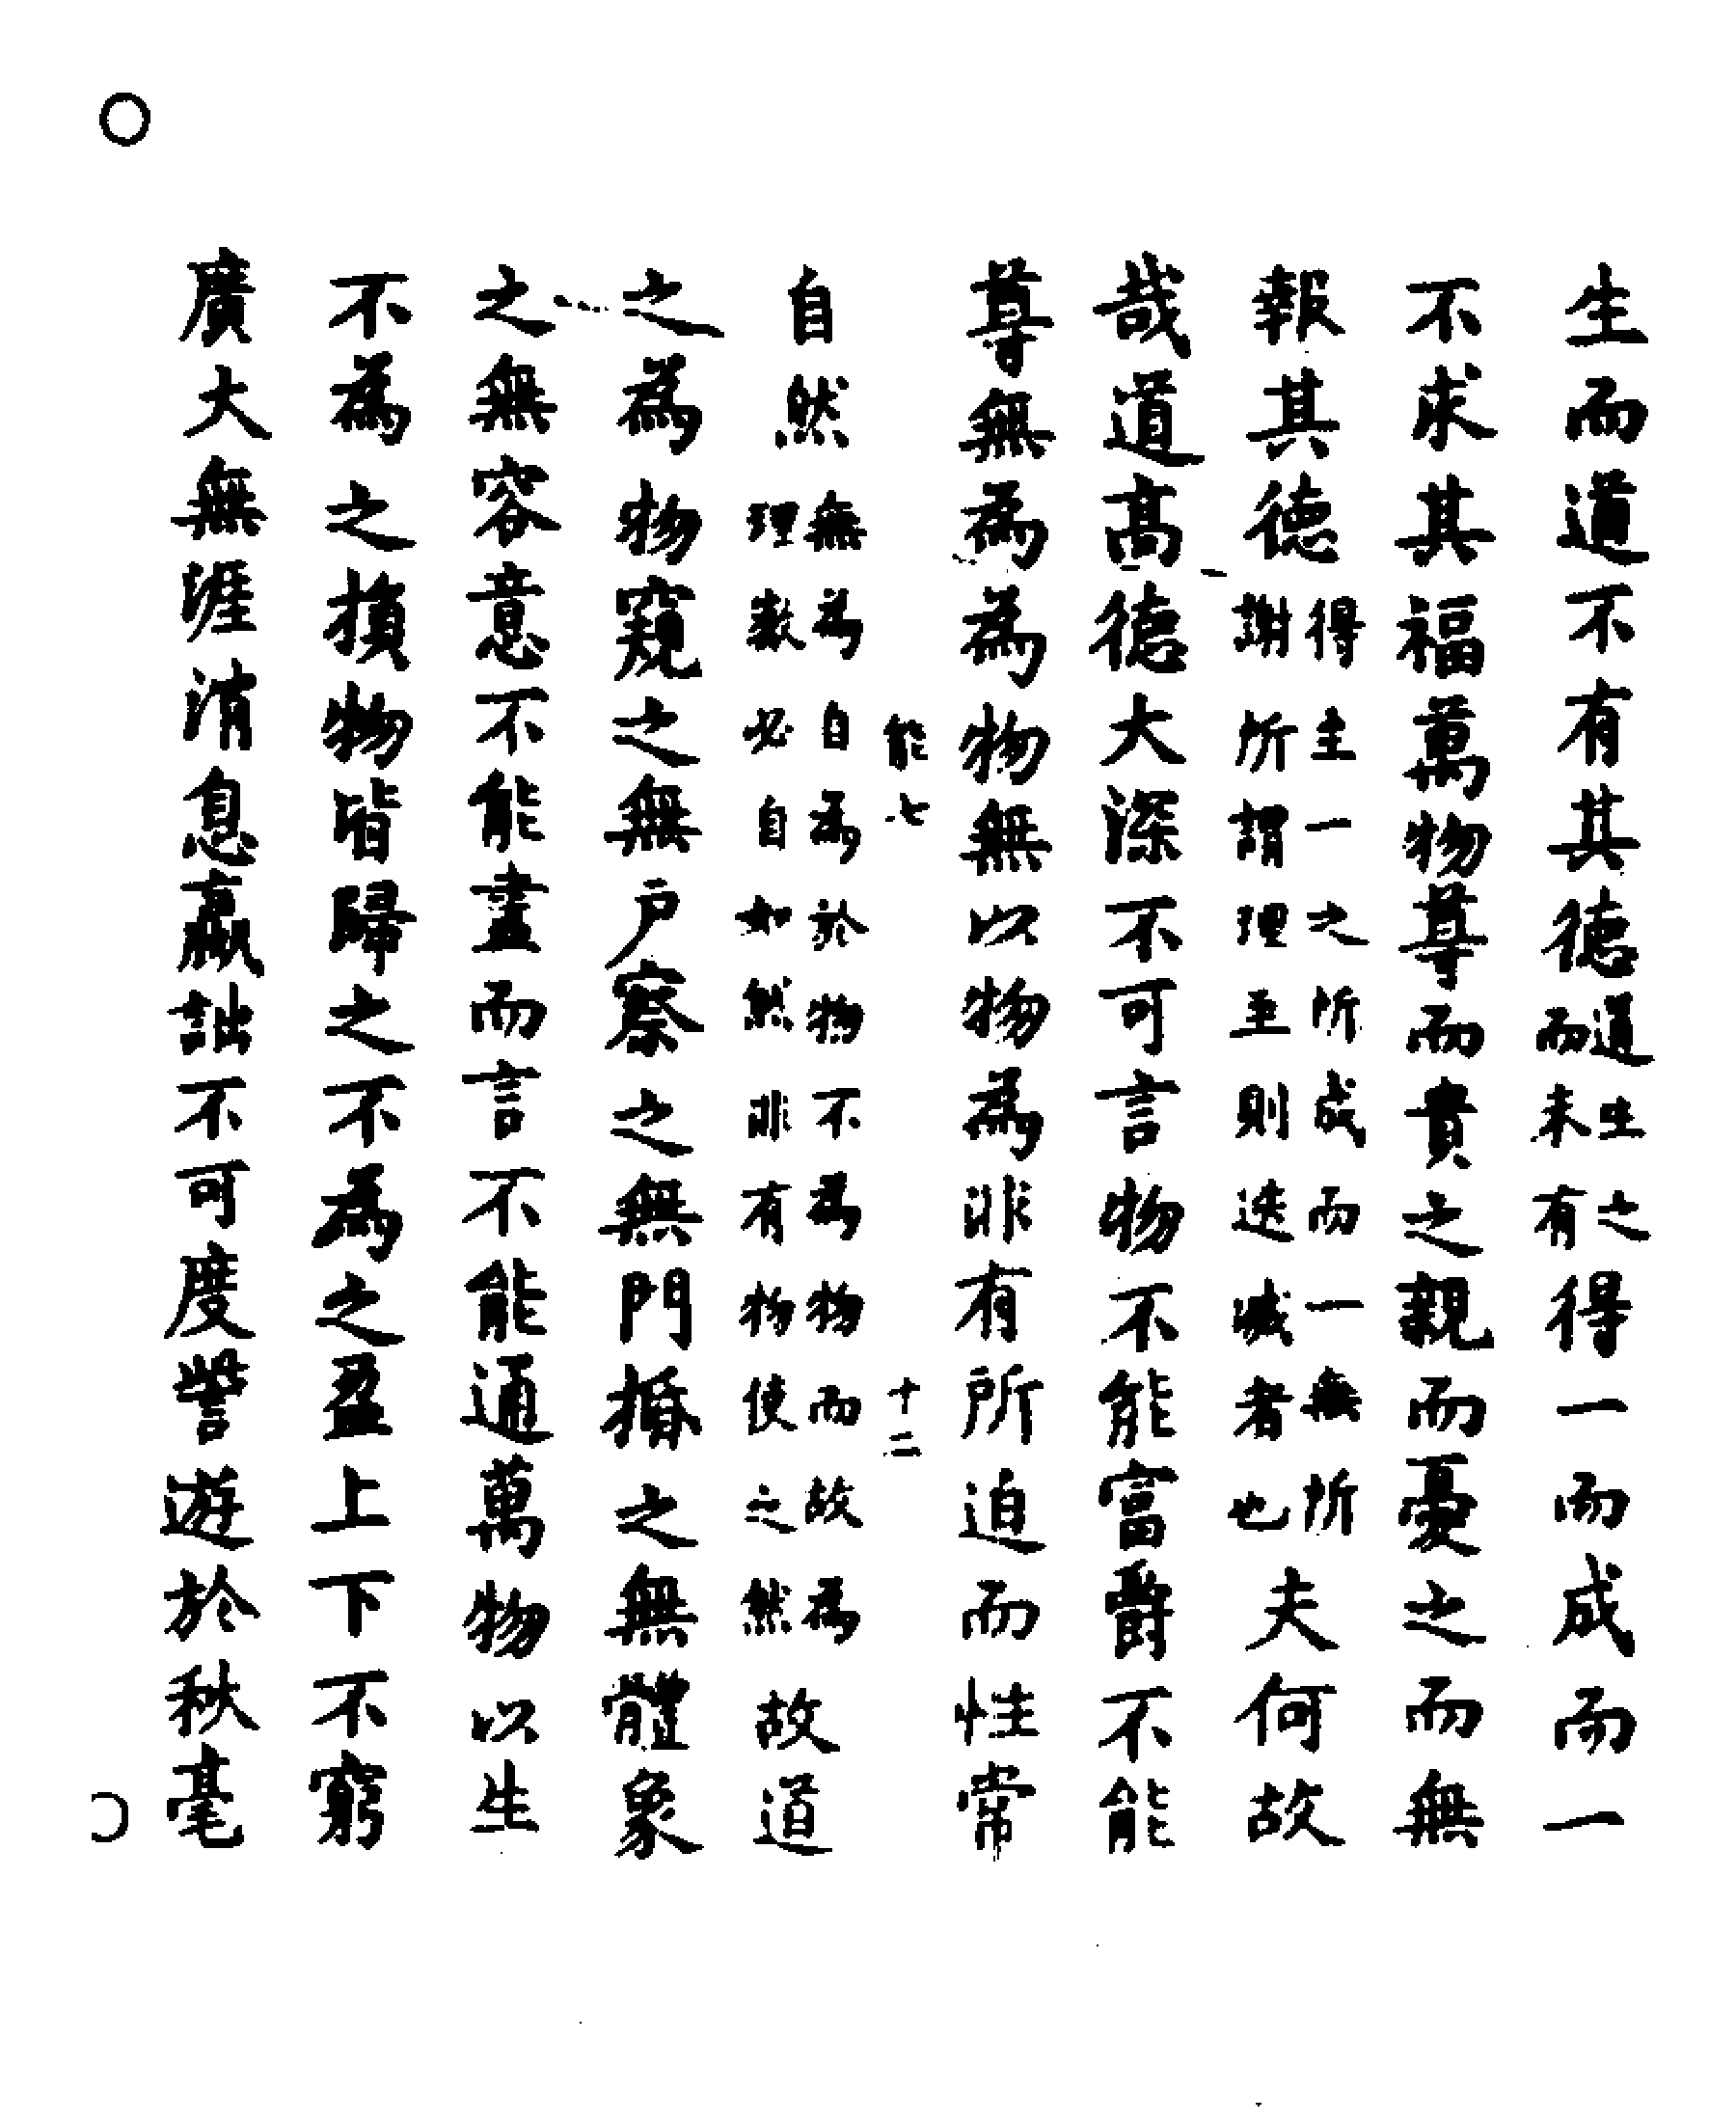 生而道不有其德道生之而未有得一而成而一
不求其福萬物尊而貴之親而憂之而無
報其德得主一之所成而一無所謝所謂理至則迭減者也夫何故
哉道高德大深不可言物不能富爵不能
尊無為為物無以物為非有所迫而性常
能七 十二
自然無為自為於物不為物而故為理數必自如然非有物使之然故道
之為物窺之無戶察之無門揗之無體象
之無容意不能盡而言不能通萬物以生
不為之損物皆歸之不為之盈上下不窮
廣大無涯消息贏詘不可度訾遊於秋毫